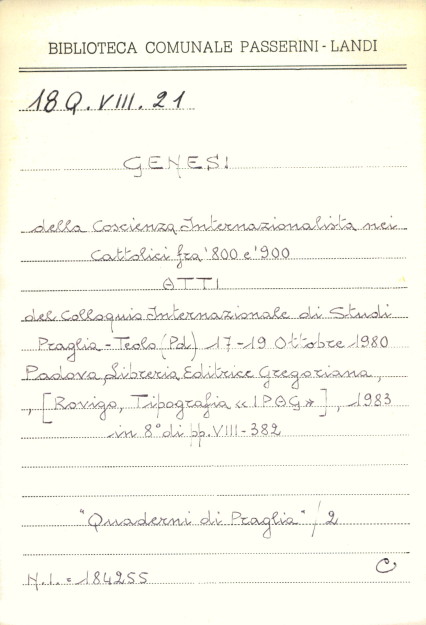 BIBLIOTECA COMUNALE PASSERINI - LANDI
18 Q. VIII. 21
GENESI
della Coscienza Internazionalista nei
Cattolici fra '800 e '900
ATTI
del Colloquio Internazionale di Studi
Praglia - Teolo (Pd) 17-19 Ottobre 1980
Padova, Libreria Editrice Gregoriana,
, [Rovigo, Tipografia «IPAG»], 1983
in 8° di pp. VIII-382
"Quaderni di Praglia" / 2
C
N.I. = 184255